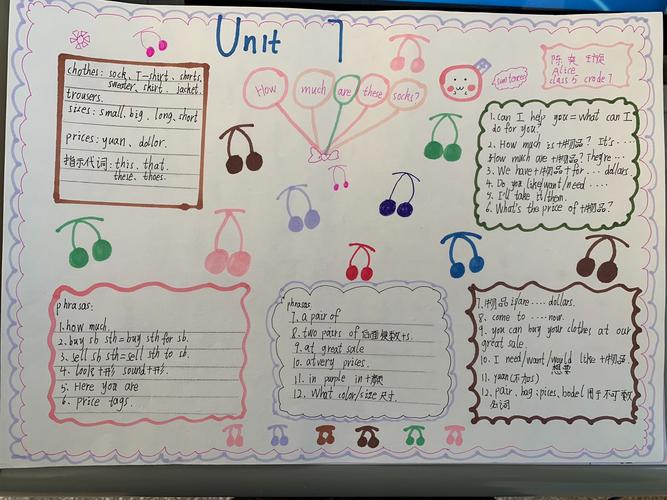 Unit 7
How much are these socks?
Alice
class 5 crade 7
chothes: sock、T-shirt、shorts,
sweater、skirt、jacket.
trousers.
sizes: small、big、long、short
prices: yuan、dollor.
指示代词: this、that.
these、thoes.
1. can I help you = what can I
do for you?
2. How much is +物品? It's ....
How much are +物品? They're...
3. We have +物品 + for .... dollars.
4. Do you like/want/need ....
5. I'll take it/them.
6. What's the price of +物品?
phrasas:
1. how much.
2. buy sb sth = buy sth for sb.
3. sell sb sth = sell sth to sb.
4. look +形 sound +形.
5. Here you are
6. price tags...
phrasas:
7. a pair of
8. two pairs of 后面接数+s.
9. at great sale
10. atvery prices.
11. in purple in +颜
12. What color/size 尺寸.
7. +物品 is/are .... dollars.
8. come to ..... now.
9. you can buy your clothes at our
great sale.
10. I need/want/would like +物品
想要
11. yuan (不加s)
12. pair、bag、pices、bodel 用于不可数
名词